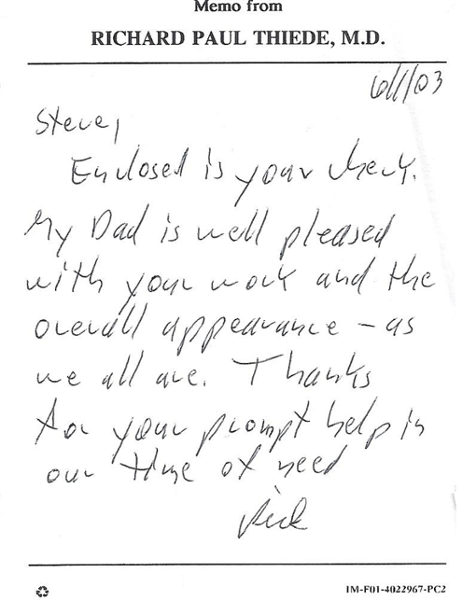 Memo from
RICHARD PAUL THIEDE, M.D.
6/1/03
Steve,
Enclosed is your check.
My Dad is well pleased
with your work and the
overall appearance - as
we all are. Thanks
for your prompt help in
our time of need
Rick
IM-F01-4022967-PC2